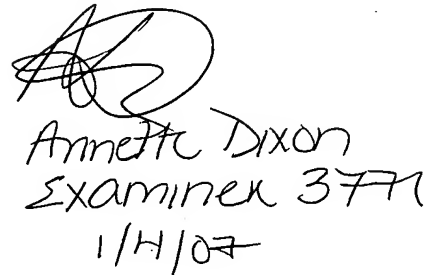 Annette Dixon
Examiner 3771
1/4/07